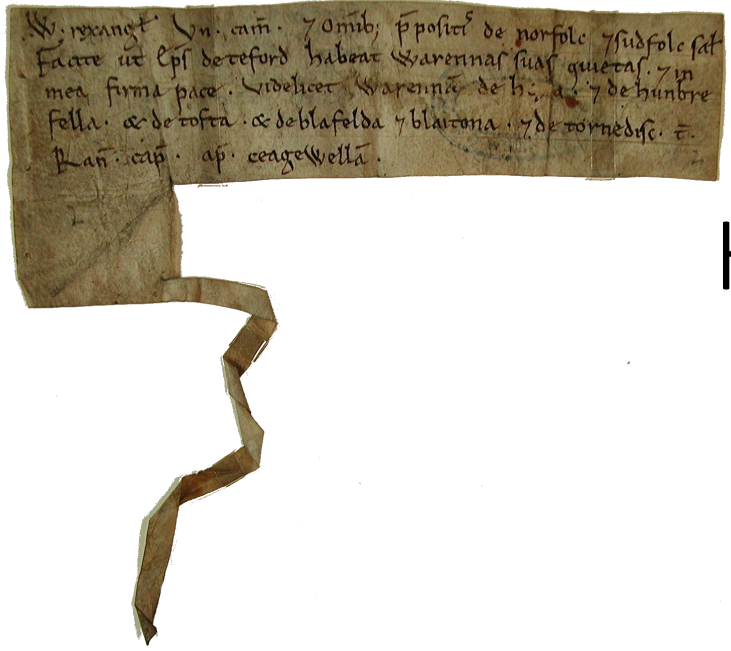 W. rex angł Vn. cam̄. ⁊ Omīb; p̄positis de norfolc ⁊ sudfolc sał
Facite ut ep̄s de teford habeat Warennas suas quietas. ⁊ in
mea firma pace. Videlicet Warennā de ⁊ de hunbre
fella. & de tofta. & de blafelda ⁊ blaitona. ⁊ de tornedisc. t̄.
Rañ. cap̄. ap̄. ceagewellā.